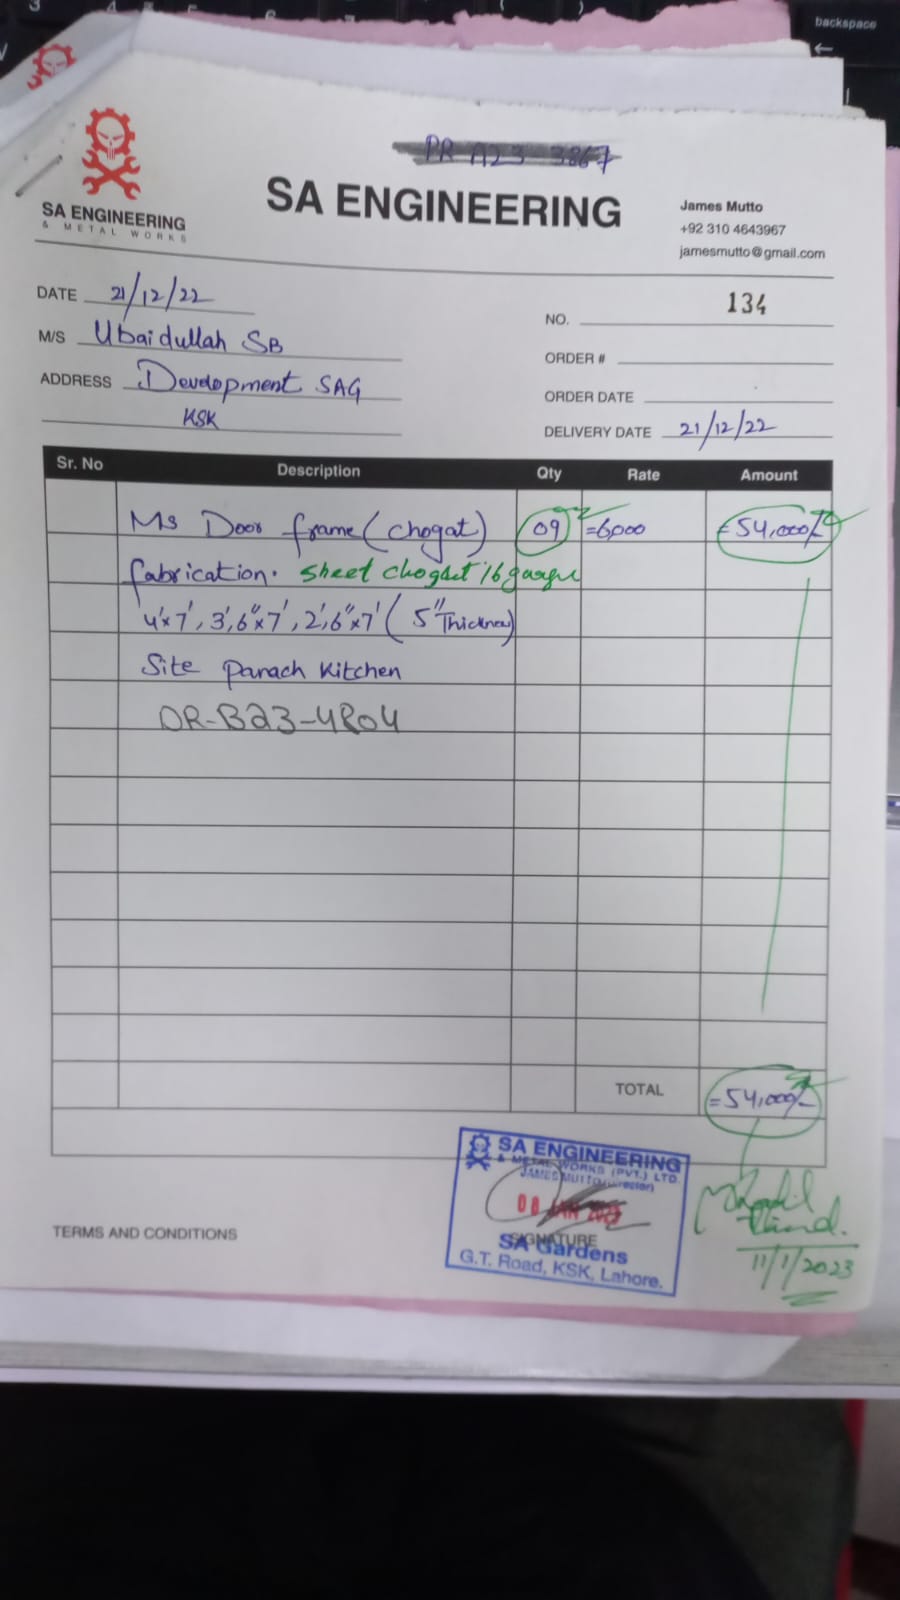 backspace
PR A23 3867
SA ENGINEERING
& METAL WORKS
SA ENGINEERING
James Mutto
+92 310 4643967
jamesmutto@gmail.com
DATE 21/12/22
NO. 134
M/S Ubaidullah SB
ORDER #
ADDRESS Development SAG
ORDER DATE
KSK
DELIVERY DATE 21/12/22
Sr. No Description Qty Rate Amount
Ms Door frame (Chogat) 09 =6000 =54,000/-
fabrication. Sheet Chogat 16 guage
4'x7', 3',6"x7', 2',6"x7' (5" Thickness)
Site Panach Kitchen
DR-B23-4804
TOTAL =54,000/-
SA ENGINEERING
& METAL WORKS (PVT.) LTD.
JAMES MUTTO (Director)
08 JAN 2023
SIGNATURE
SA Gardens
G.T. Road, KSK, Lahore.
11/1/2023
TERMS AND CONDITIONS